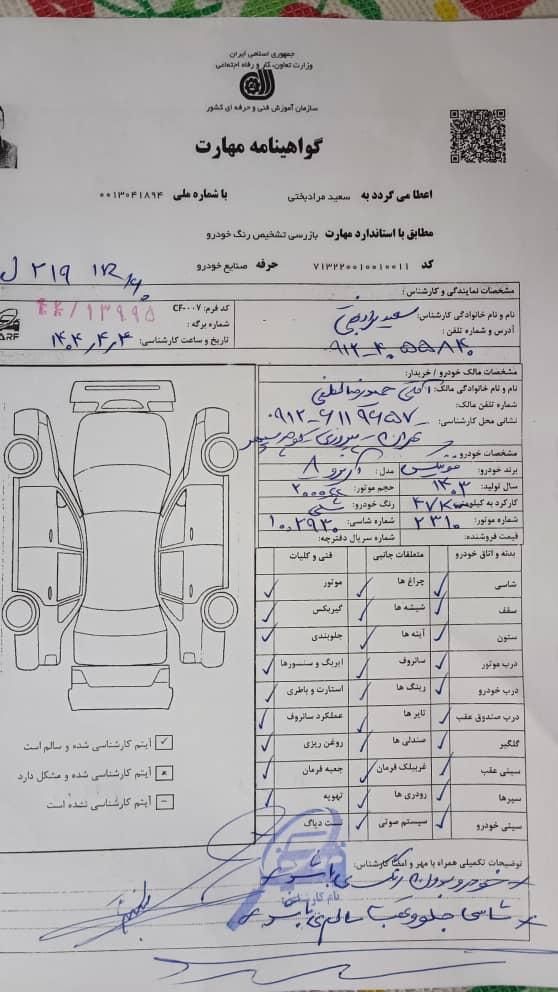 جمهوری اسلامی ایران
وزارت تعاون، کار و رفاه اجتماعی
سازمان آموزش فنی و حرفه ای کشور
گواهینامه مهارت
اعطا می گردد به سعید مرادبختی با شماره ملی ۰۰۱۳۰۴۱۸۹۴
مطابق با استاندارد مهارت بازرسی تشخیص رنگ خودرو
کد ۷۱۳۲۲۰۰۱۰۰۱۰۰۱۱ حرفه صنایع خودرو
۲۱۹ ل
مشخصات نمایندگی و کارشناس:
نام و نام خانوادگی کارشناس:
آدرس و شماره تلفن:
کد فرم: CF-007
شماره برگه: ۴۴/۱۳۹۹۵
تاریخ و ساعت کارشناسی: ۱۴۰۴,۴,۴
ARF
مشخصات مالک خودرو / خریدار:
نام و نام خانوادگی مالک: آقای حمیدرضا لطفی
شماره تلفن مالک:
نشانی محل کارشناسی: تهران
مشخصات خودرو:
برند خودرو: فونیکس مدل: آریزو ۸
سال تولید: ۱۴۰۳ حجم موتور: ۲۰۰۰cc
کارکرد به کیلومتر: رنگ خودرو:
شماره موتور: ۲۳۱۰ شماره شاسی: ۱۰۲۹۳۰
قیمت فروشنده: شماره سریال دفترچه:
بدنه و اتاق خودرو متعلقات جانبی فنی و کلیات
شاسی ✓ چراغ ها ✓ موتور ✓
سقف ✓ شیشه ها ✓ گیربکس ✓
ستون ✓ آینه ها ✓ جلوبندی ✓
درب موتور ✓ سانروف ✓ ایربگ و سنسورها ✓
درب خودرو ✓ رینگ ها ✓ استارت و باطری ✓
درب صندوق عقب ✓ تایر ها ✓ عملکرد سانروف ✓
گلگیر ✓ صندلی ها ✓ روغن ریزی ✓
سینی عقب ✓ غربیلک فرمان ✓ جعبه فرمان ✓
سپرها ✓ رودری ها ✓ تهویه ✓
سینی خودرو ✓ سیستم صوتی ✓ تست دیاگ ✓
✓ آیتم کارشناسی شده و سالم است
× آیتم کارشناسی شده و مشکل دارد
− آیتم کارشناسی نشده است
توضیحات تکمیلی همراه با مهر و امضا کارشناس:
× خودرو بدون رنگ می باشد ×
نام کارشناس:
× شاسی جلو و عقب سالم می باشد ×